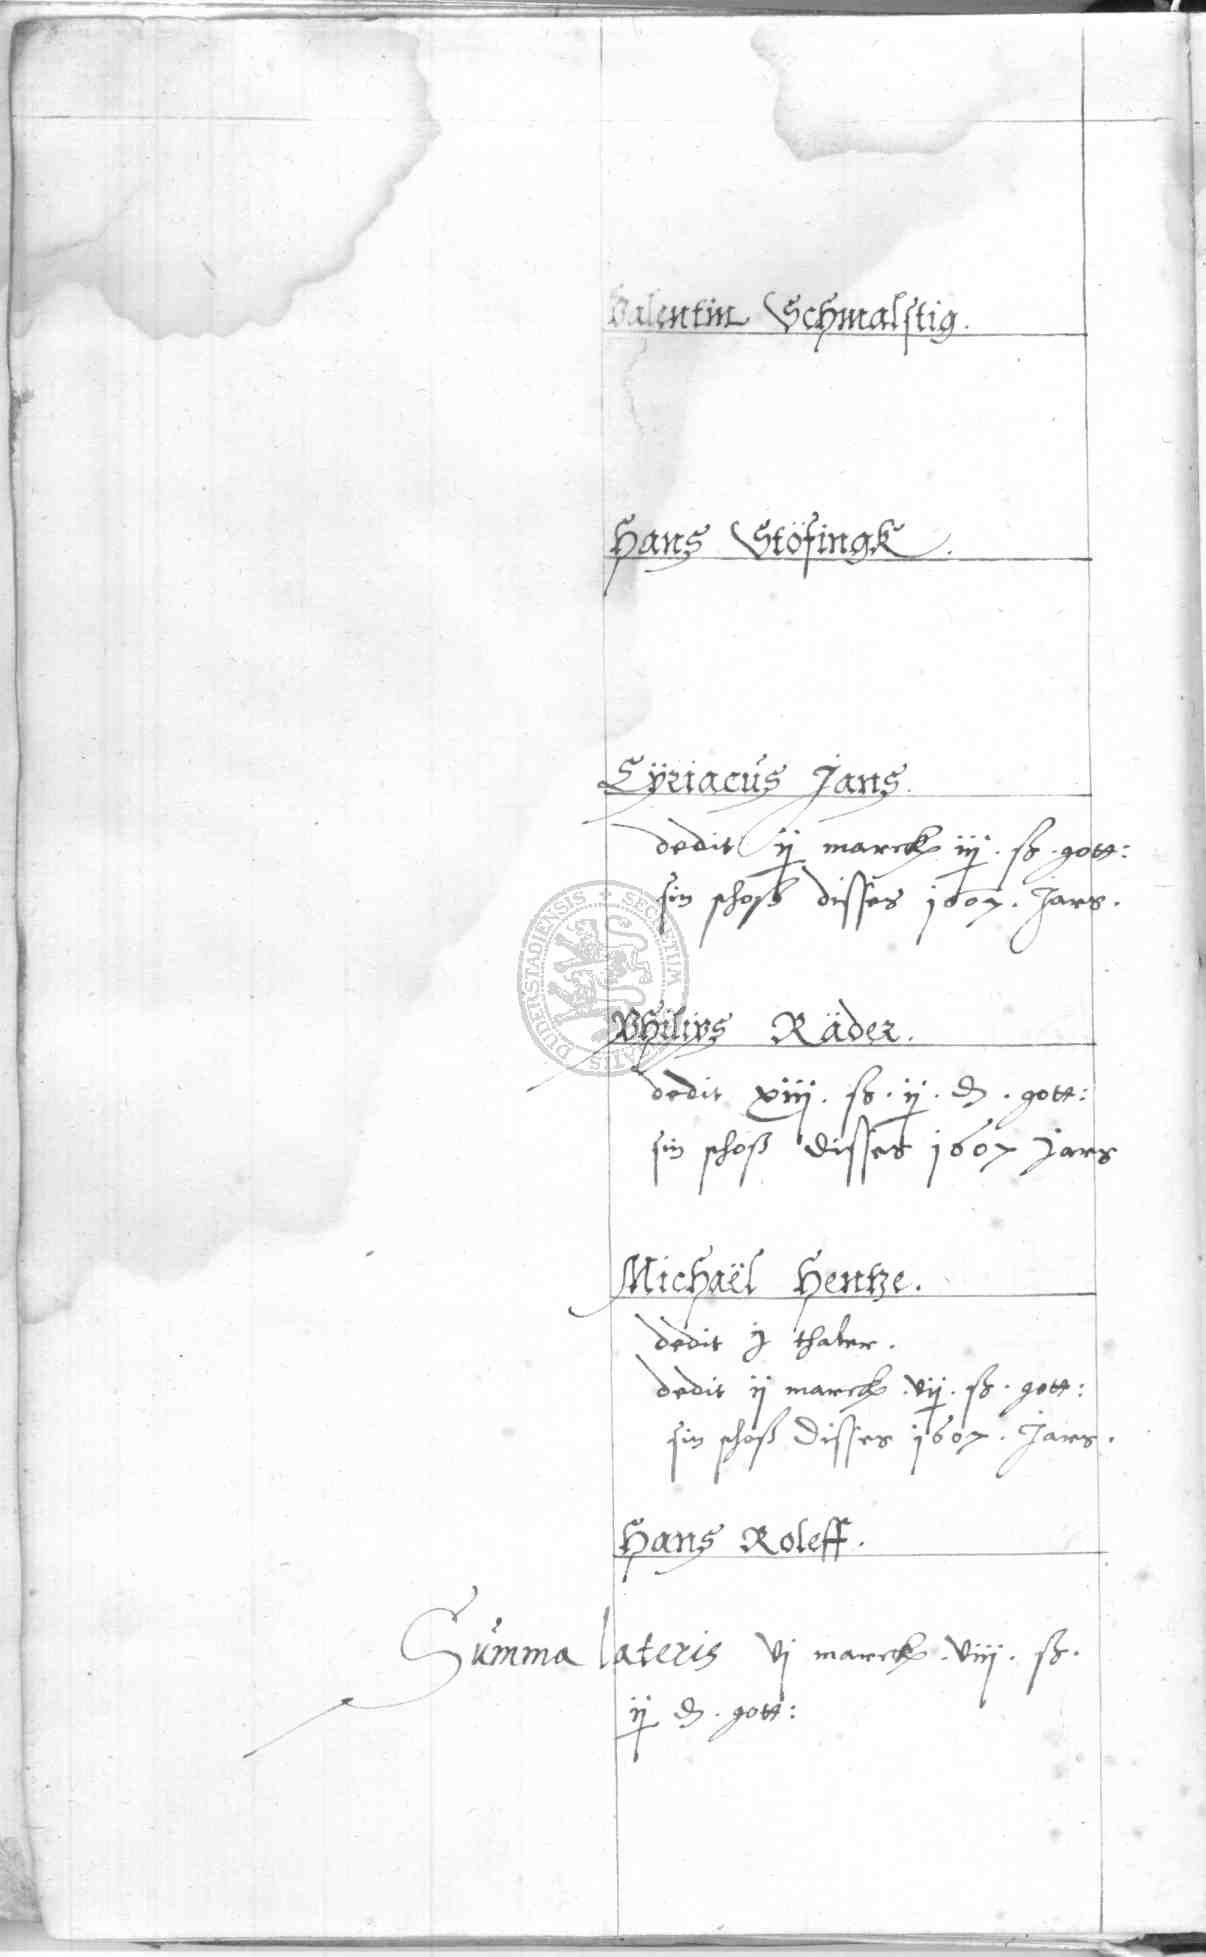 Valentin Schmalstig.
Hans Stöfingk.
Cÿriacus Jans.
dedit ij marck iij. ß. gott:
sin schoß disses 1607. Jars.
Philips Räder.
dedit xiij. ß. ij. d. gott:
sin schoß disses 1607 Jars
Michaël Hentze.
dedit j thaler.
dedit ij marck. vij. ß. gott:
sin schoß disses 1607. Jars.
Hans Roleff.
Summa lateris vj marck. viij. ß.
ij d. gott:
DUDERSTADIENSIS SECRETUM